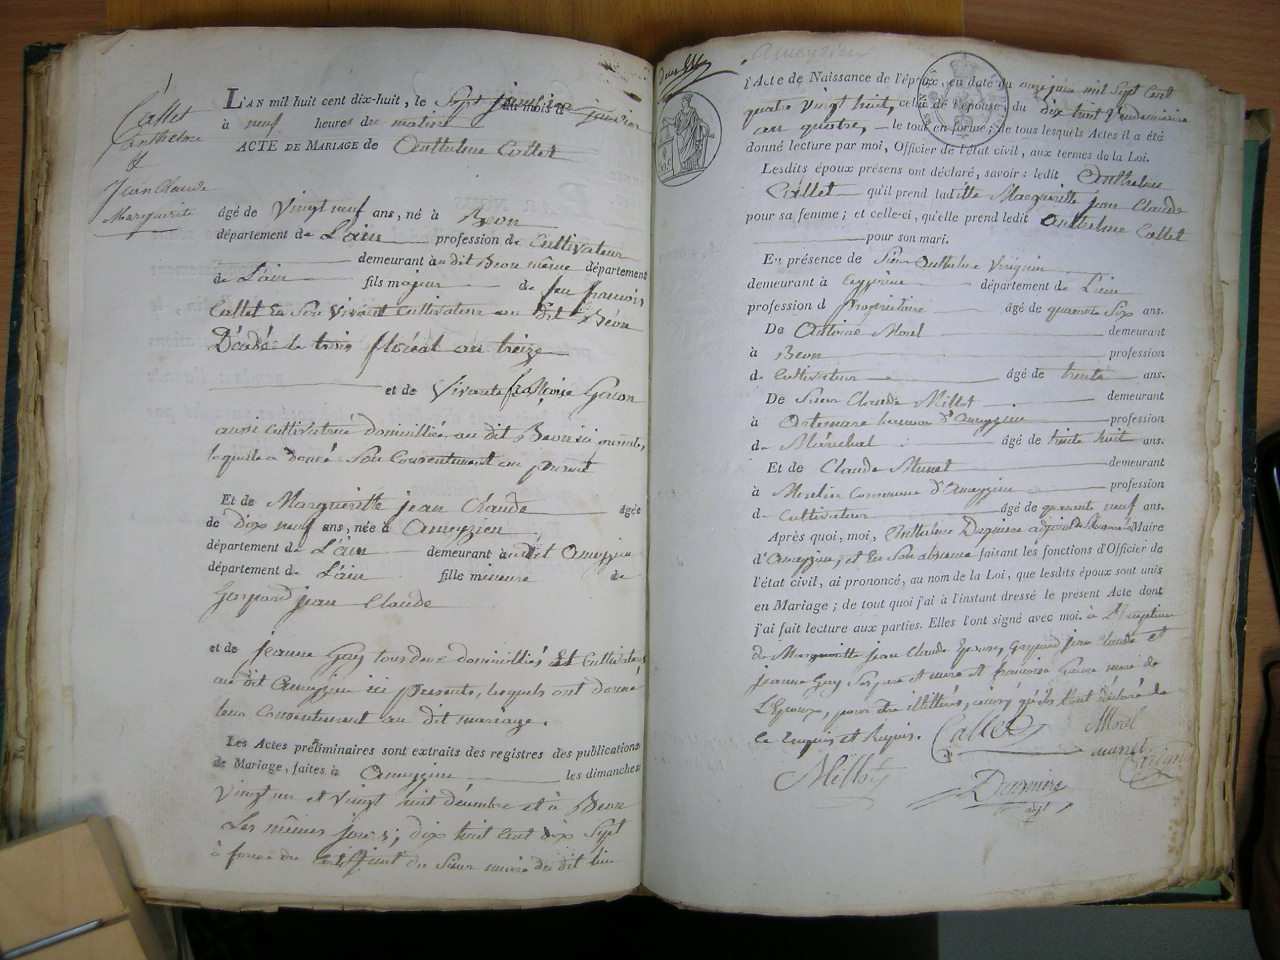 Callet
Anthelme
et
Jean Claude
Marguerite
L'AN mil huit cent dix-huit, le Sept du mois de janvier
à neuf heures du matin
ACTE DE MARIAGE de Anthelme Callet
âgé de vingt neuf ans, né à Beon
département de L'ain profession de Cultivateur
demeurant au dit Beon même département
de L'ain fils majeur de feu francois
Callet En Son Vivant Cultivateur au dit Béon
Décédé le trois floréal an treize
et de Vivante françoise
aussi Cultivatrice domiciliée au dit Beon ici présente,
laquelle a donné Son Consentement au présent
Et de Margueritte jean Claude âgée
de dix neuf ans, née à Ameyzieu
département de L'ain demeurant au dit Ameyzieu
département de L'ain fille mineure de
Gaspard jean Claude
et de jeanne Gay tous deux domiciliés Et Cultivateurs
au dit Ameyzieu ici présents, lesquels ont donné
leur Consentement au dit mariage.
Les Actes préliminaires sont extraits des registres des publications
de Mariage, faites à Ameyzieu les dimanches
Vingt un et Vingt huit décembre et à Beon
Les mêmes jours, dix huit Cent dix Sept
à du Certifficat du Sieur maire du dit lieu
Ameyzieu
l'Acte de Naissance de l'époux, en date du onze juin mil Sept Cent
quatre Vingt huit, celui de l'épouse, du dix huit Vendemiaire
an quatre, le tout en forme; de tous lesquels Actes il a été
donné lecture par moi, Officier de l'état civil, aux termes de la Loi.
Lesdits époux présens ont déclaré, savoir: ledit Anthelme
Callet qu'il prend ladite Margueritte jean Claude
pour sa femme; et celle-ci, qu'elle prend ledit Anthelme Callet
pour son mari.
En présence de Sieur Anthelme
demeurant à département de L'ain
profession d Propriétaire âgé de quarante Six ans.
De Antoine Morel demeurant
à Beon profession
de Cultivateur âgé de trente ans.
De Sieur Claude Millot demeurant
à Artemare Commune d'Ameyzieu profession
de Maréchal âgé de trente huit ans.
Et de Claude Munet demeurant
à Commune d'Ameyzieu profession
de Cultivateur âgé de quarante neuf ans.
Après quoi, moi, Anthelme adjoint de Maire
d'Ameyzieu, et En Son absence faisant les fonctions d'Officier de
l'état civil, ai prononcé, au nom de la Loi, que lesdits époux sont unis
en Mariage; de tout quoi j'ai à l'instant dressé le présent Acte dont
j'ai fait lecture aux parties. Elles l'ont signé avec moi. à L'Exception
de Margueritte jean Claude Epouse, Gaspard jean Claude et
jeanne Gay Ses père et mère et francoise mère de
L'Epoux, pour être illettrés, ainsi qu'ils l'ont déclaré de
ce Enquis et Requis. Callet Morel
Munet
Millot
adjt